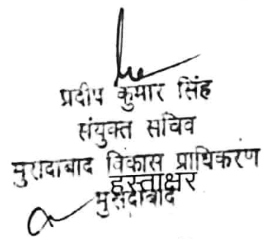 प्रदीप कुमार सिंह
संयुक्त सचिव
मुरादाबाद विकास प्राधिकरण
हस्ताक्षर
मुरादाबाद